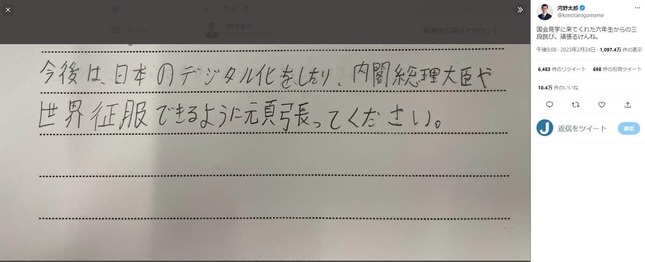 今後は、日本のデジタル化をしたり、内閣総理大臣や
世界征服できるように頑張ってください。
河野太郎
@konotarogomame
国会見学に来てくれた六年生からの三
段跳び。頑張るけんね。
午後5:08 · 2023年2月24日 · 1,097.4万 件の表示
6,483 件のリツイート 698 件の引用ツイート
10.4万 件のいいね
返信をツイート
返信